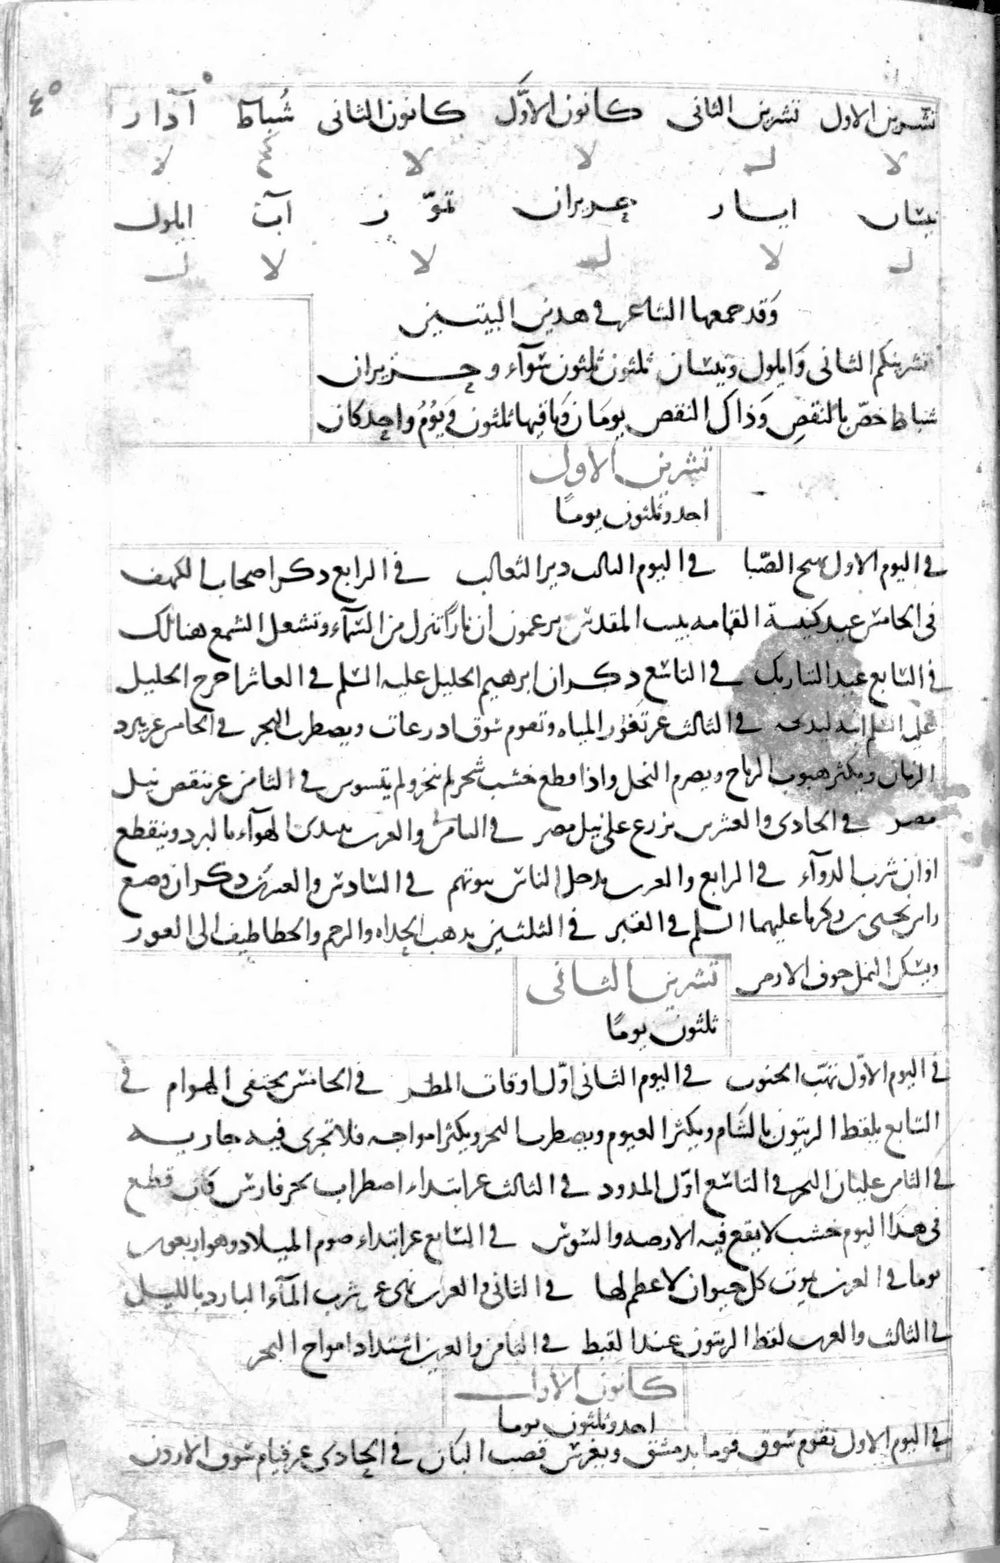 ٤٥
تشرين الاول تشرين الثانى كانون الاوّل كانون الثانى شُباط آذار
لا ل لا لا لا
نيسان ايار حزيران تموّز آب ايلول
ل لا ل لا لا ل
وَقد جمعها الشاعر فى هذين البيتين
تشرينكم الثانى وَايلول ونيسان ثلثون ثلثون سَوآء وحزيران
شباط خصّ بالنقصِ وَذاكَ النقص يومَان وَباقيها ثلثون وَيَوْمٌ واحد كان
تشرين الاول
احد وثلثون يومًا
فى اليوم الاول تهيج الصَّبا فى اليوم الثالث دير الثعالب فى الرابع ذكر اصحاب الكهف
فى الخامس عيد كنيسة القمامه ببيت المقدس يزعمون ان نارًا تنزل من السَّمآء وتشعل الشمع هنالك
فى السّابع عيد التباريك فى التاسع ذكران ابرهيم الخليل عليه السّلم فى العاشر اخرج الخليل
عليه السلم ابنه ليذبحه فى الثالث عر تَغوُر المياه وتقوم سُوق ادرعات ويضطرب البحر فى الخامس عر يبرد
الزمان ويكثر هبوب الرياح ويصرم النخل واذا قطع خشب شجر لم ينخر ولم يتسوس فى الثامن عر ينقص نيل
مصر فى الحادى والعشرين يزرع على نيل مصر فى الثامن والعرب يبتدى الهوآء بالبرد وينقطع
اوان شرب الدوآء فى الرابع والعرب يدخل الناس بيوتهم فى السّادس والعشرين ذكران وضع
راس يحيى بن زكريا عليهما السلم فى القبر فى الثلثين يذهب الحداه والرخم والخطاطيف الى الغور
ويسكن النمل جوف الارض
تشرين الثانى
ثلثون يومًا
فى اليوم الاوّل تهبّ الجنوب فى اليوم الثانى اوّل اوقات المطر فى الخامس يختفى الهوام فى
السّابع يلقط الزيتون بالشّام ويكثر الغيوم ويضطرب البحر ويكثر امواجه فلا تجرى فيه جاريه
فى الثامن غليان البحر فى التاسع اوّل المدود فى الثالث عر ابتداء اضطراب بحر فارس كان قطع
فى هذا اليوم خشب لا يقع فيه الارضه والسّوس فى السّابع عر ابتداء صوم الميلاد وهو اربعون
يوما فى العرين يموت كل حيوان لا عظم لها فى الثانى والعرين نهى عن شرب المآء البارد بالليل
فى الثالث والعرب لقط الزيتون عند القبط فى الثامن والعرين اشتداد امواج البحر
كانون الاول
احد وثلثون يوما
فى اليوم الاول تقوم سُوق فوما بدمشق ويغرس قصب البان فى الحادى عر قيام سُوق الاردن